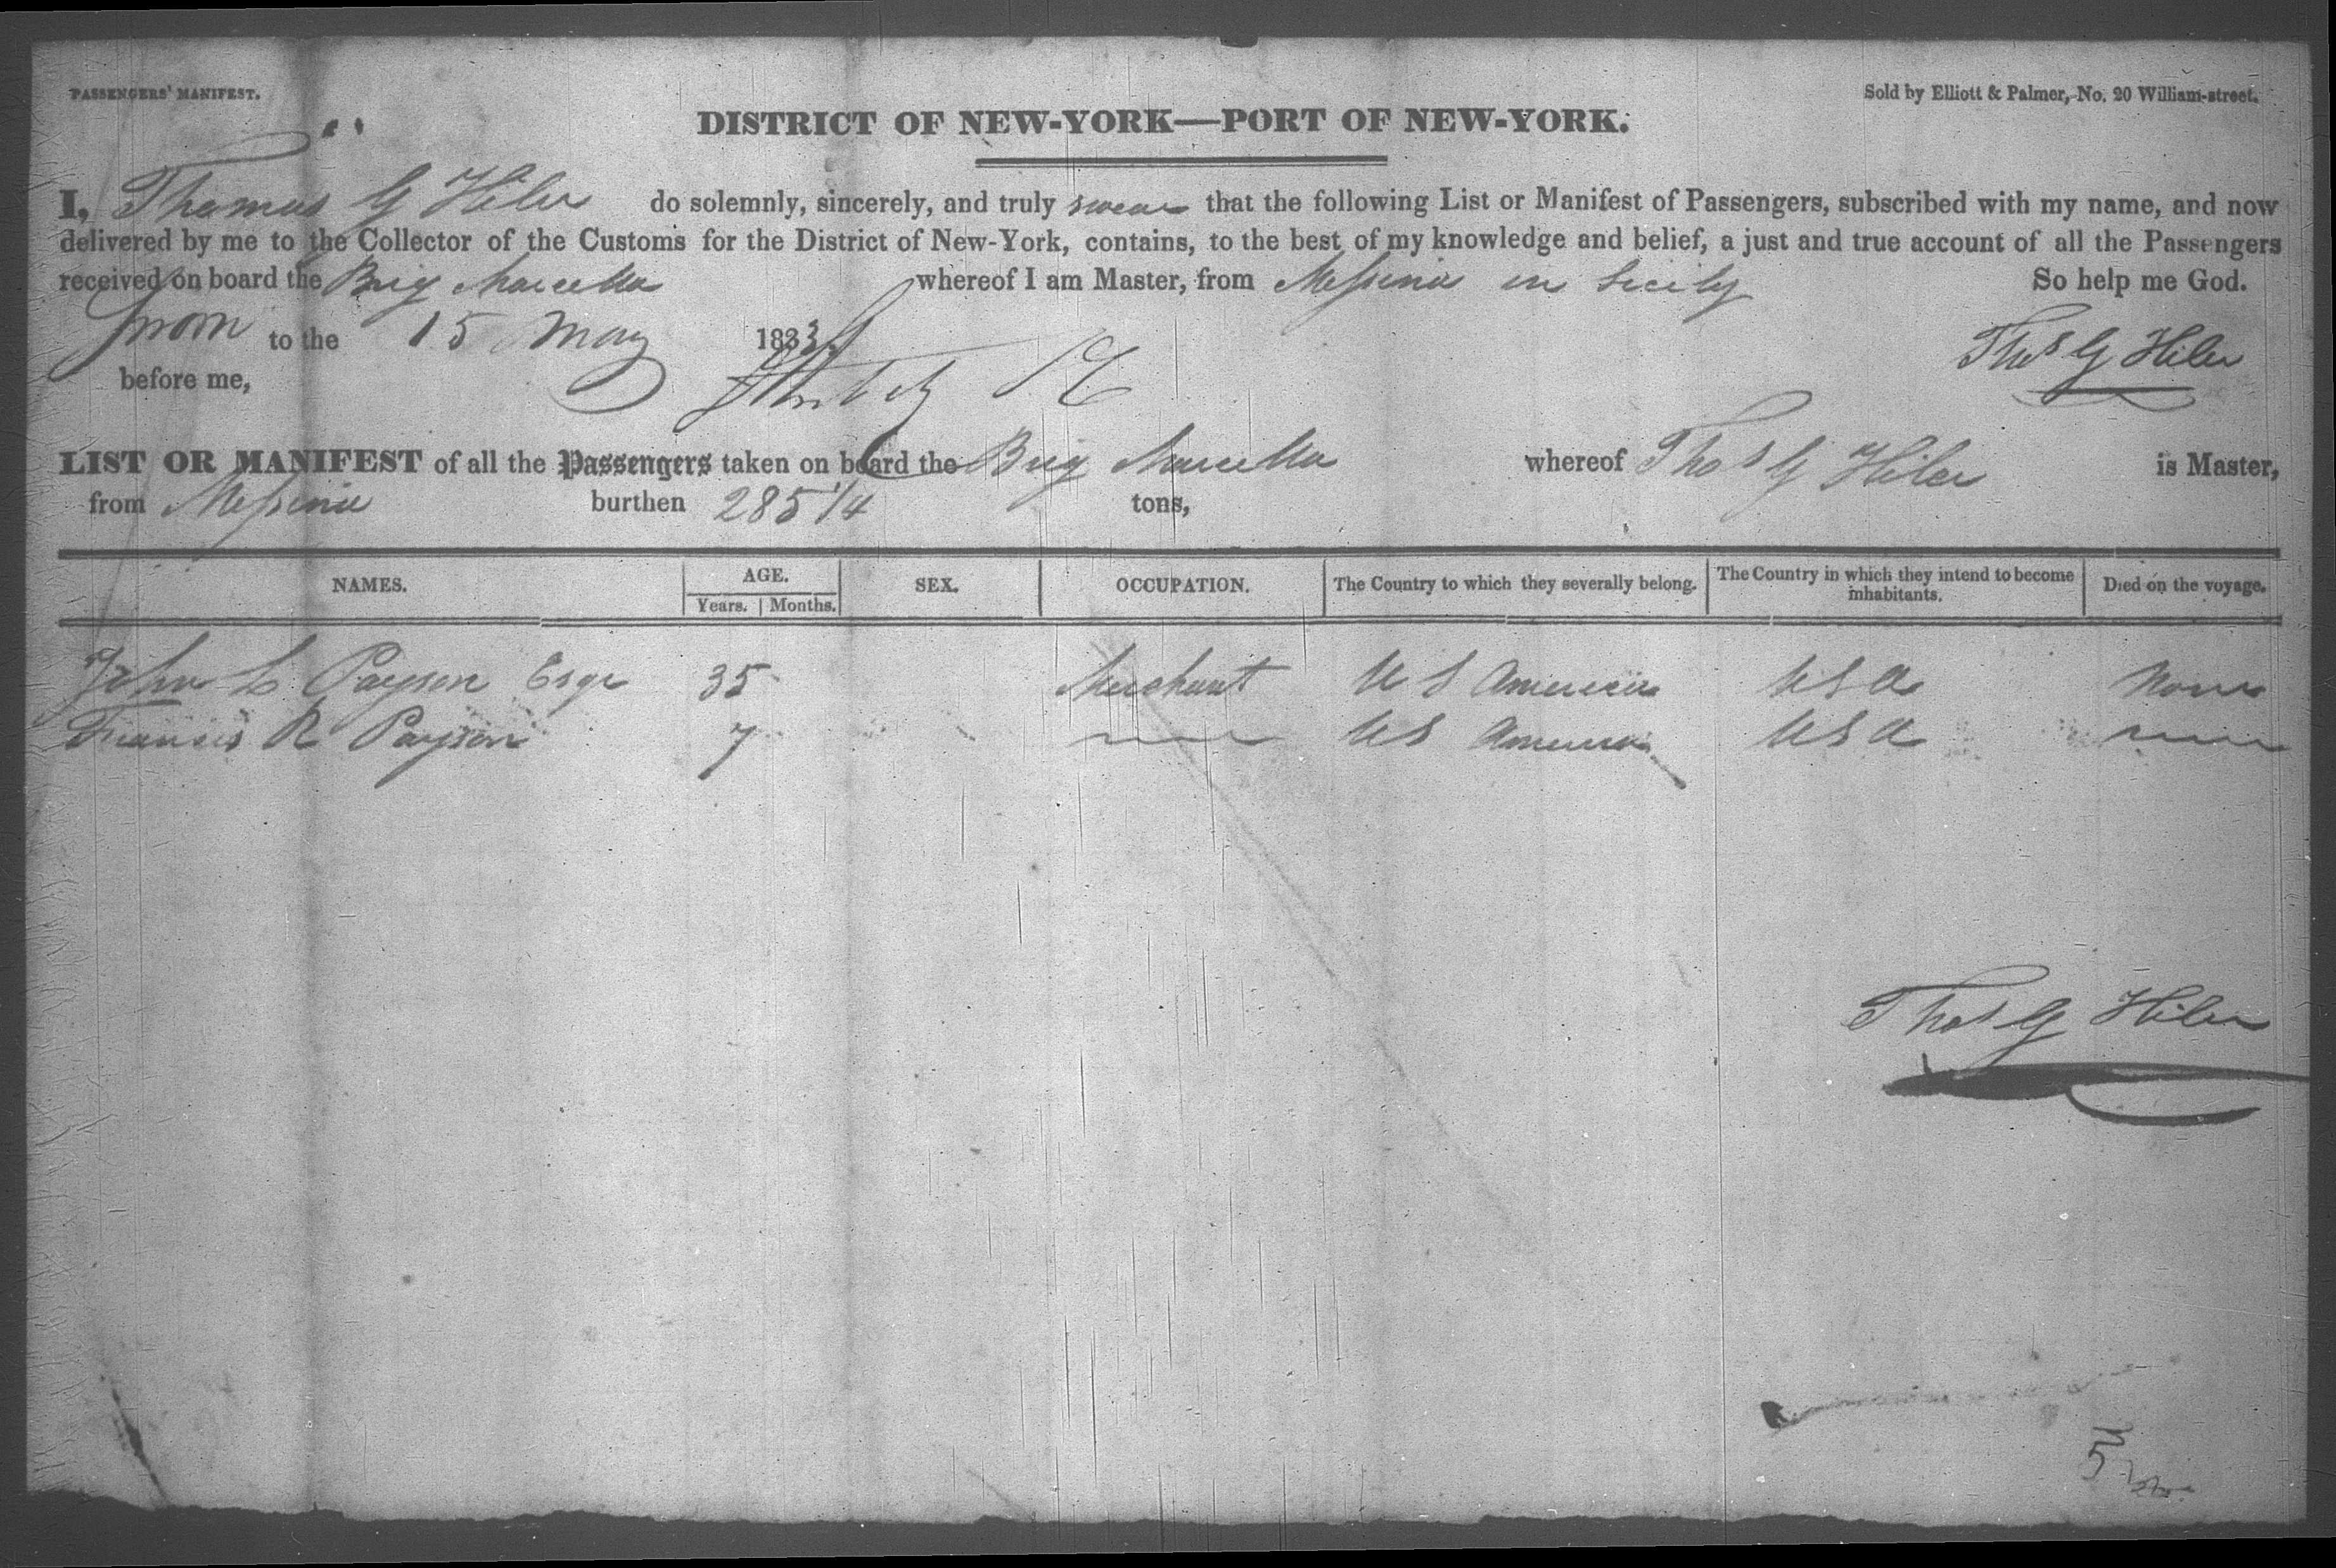 PASSENGERS' MANIFEST.
Sold by Elliott & Palmer, No. 20 William-street.
DISTRICT OF NEW-YORK—PORT OF NEW-YORK.
I, Thomas G Hiler do solemnly, sincerely, and truly swear that the following List or Manifest of Passengers, subscribed with my name, and now
delivered by me to the Collector of the Customs for the District of New-York, contains, to the best of my knowledge and belief, a just and true account of all the Passengers
received on board the Brig Marcella whereof I am Master, from Messina in Sicily So help me God.
Sworn to the 15 May 1833
Thos G Hiler
before me,
LIST OR MANIFEST of all the Passengers taken on board the Brig Marcella whereof Thos G Hiler is Master,
from Messina burthen 285 1/4 tons,
NAMES. AGE. SEX. OCCUPATION. The Country to which they severally belong. The Country in which they intend to become inhabitants. Died on the voyage.
Years. Months.
John L Payson Esqr 35 Merchant U S America U S A None
Francis R Payson 7 U S America U S A
Thos G Hiler